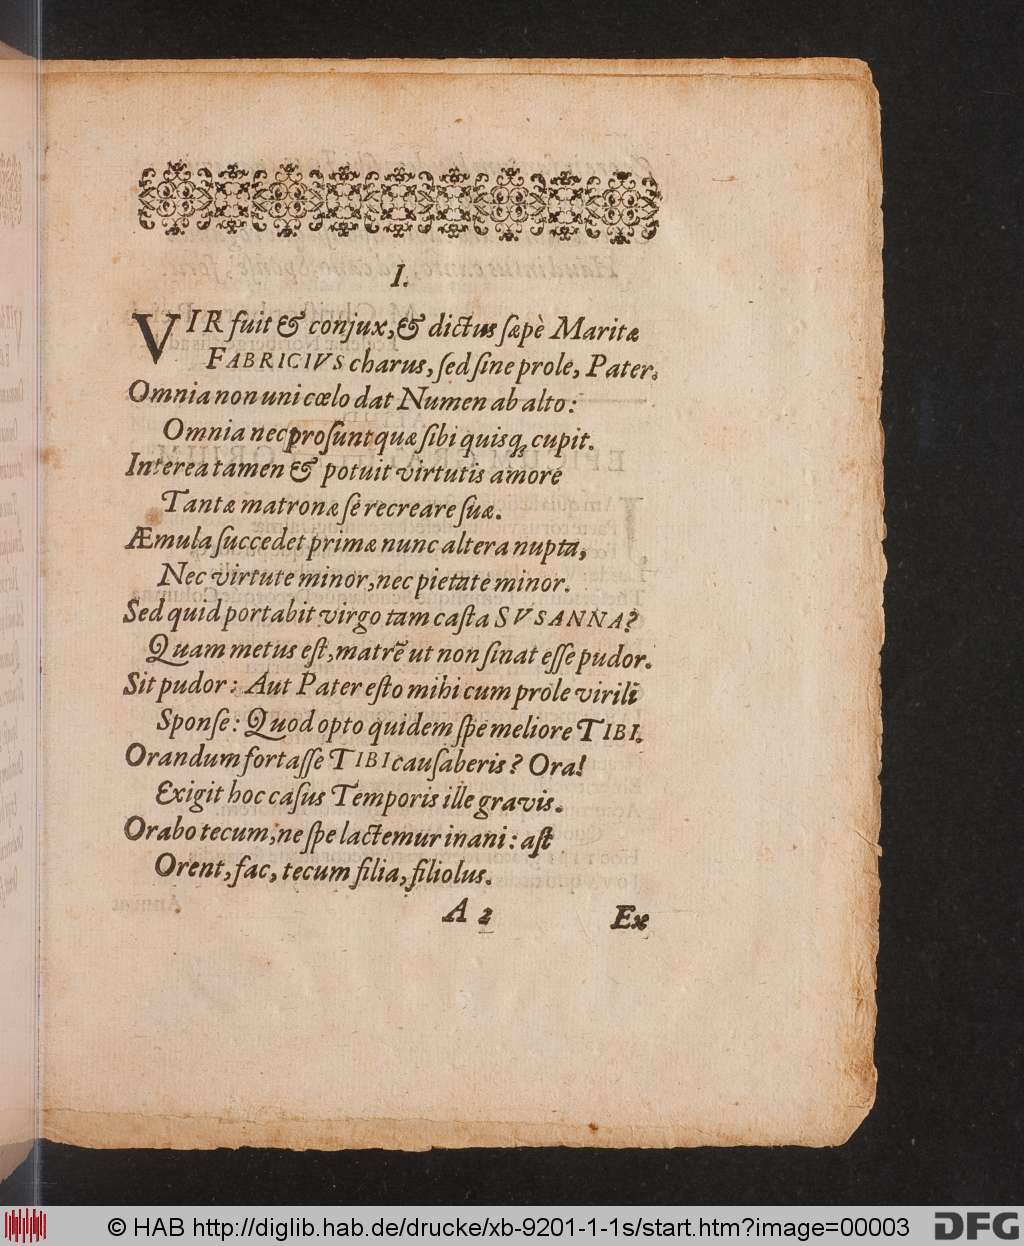 I.
VIR fuit & conjux, & dictus sæpè Maritæ
FABRICIVS charus, sed sine prole, Pater.
Omnia non uni cœlo dat Numen ab alto:
Omnia nec prosunt quæ sibi quisq; cupit.
Interea tamen & potuit virtutis amore
Tantæ matronæ se recreare suæ.
Æmula succedet primæ nunc altera nupta,
Nec virtute minor, nec pietate minor.
Sed quid portabit virgo tam casta SVSANNA?
Quam metus est, matrē ut non sinat esse pudor.
Sit pudor: Aut Pater esto mihi cum prole virili
Sponse: Quod opto quidem spe meliore TIBI.
Orandum fortasse TIBI causaberis? Ora!
Exigit hoc casus Temporis ille gravis.
Orabo tecum, ne spe lactemur inani: ast
Orent, fac, tecum filia, filiolus.
A 2 Ex
© HAB http://diglib.hab.de/drucke/xb-9201-1-1s/start.htm?image=00003 DFG